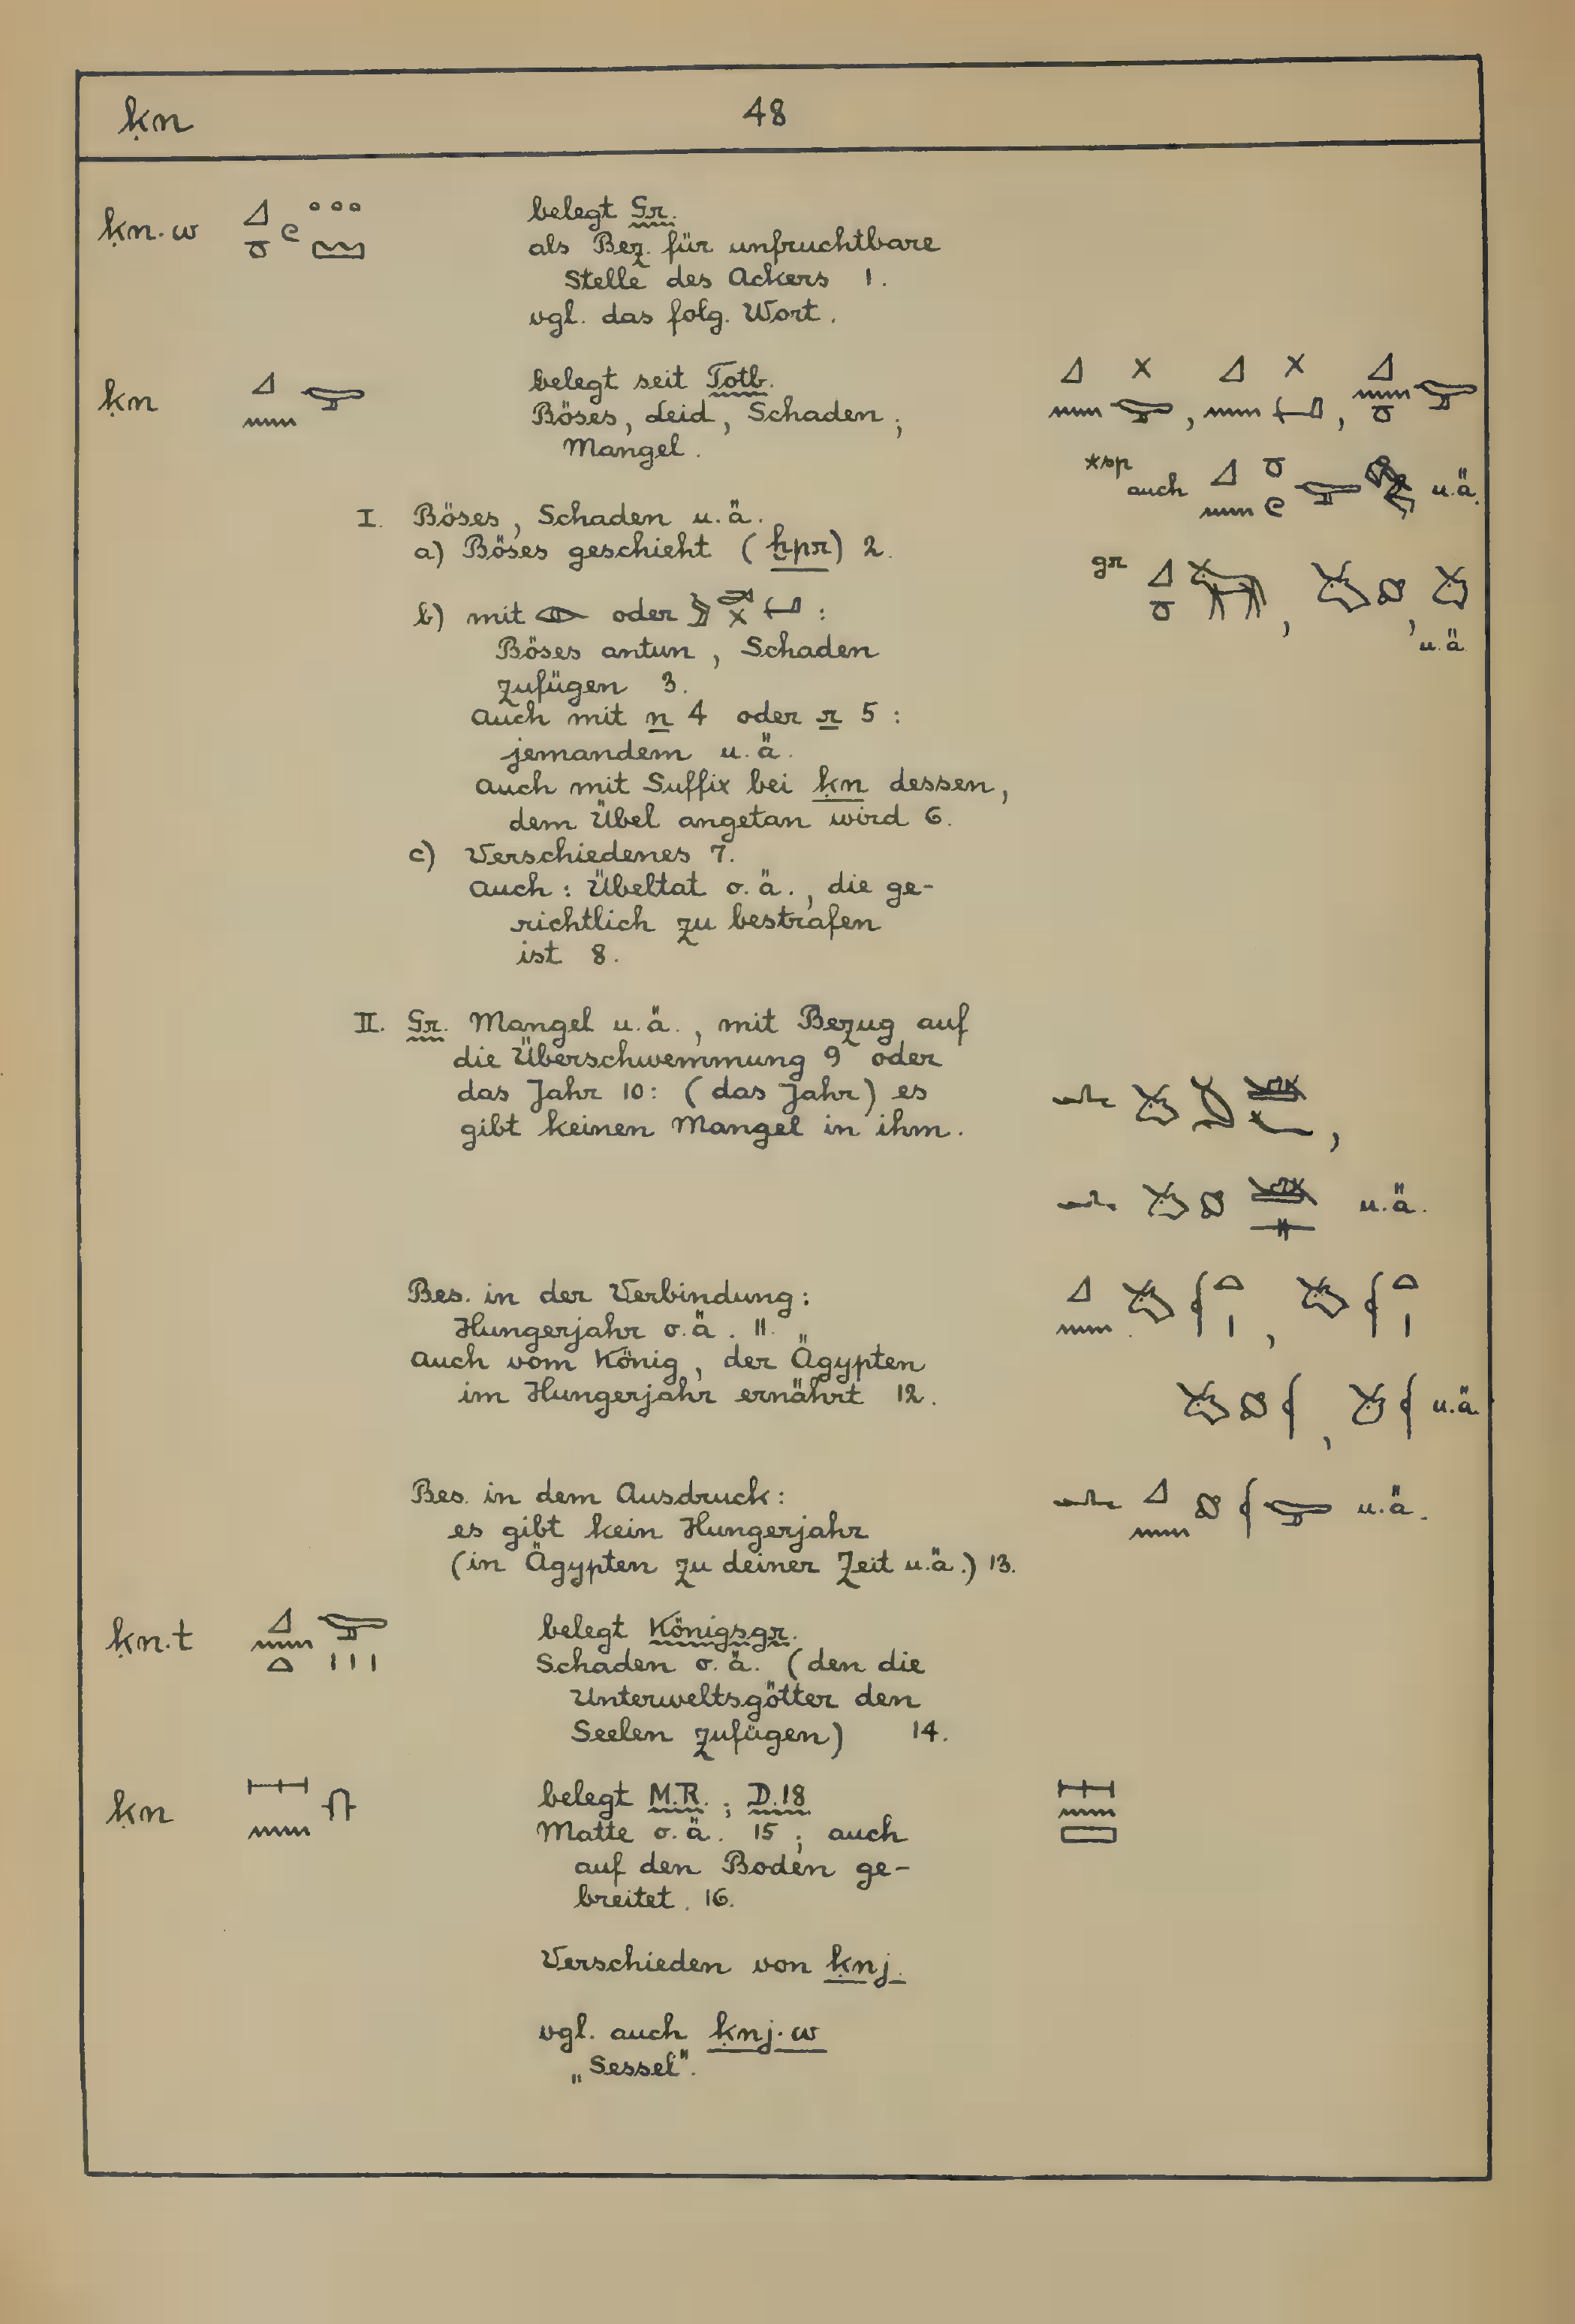 ḳn 48
ḳn.w belegt Gr.
als Bez. für unfruchtbare
Stelle des Ackers 1.
vgl. das folg. Wort.
ḳn belegt seit Totb.
Böses, Leid, Schaden;
Mangel.
*sp auch u.ä.
I. Böses, Schaden u.ä.
a) Böses geschieht (ḫpr) 2.
gr , , u.ä.
b) mit oder :
Böses antun, Schaden
zufügen 3.
auch mit n 4 oder r 5:
jemandem u.ä.
auch mit Suffix bei ḳn dessen,
dem Übel angetan wird 6.
c) Verschiedenes 7.
auch: Übeltat o.ä., die ge-
richtlich zu bestrafen
ist 8.
II. Gr. Mangel u.ä., mit Bezug auf
die Überschwemmung 9 oder
das Jahr 10: (das Jahr) es
gibt keinen Mangel in ihm.
u.ä.
Bes. in der Verbindung:
Hungerjahr o.ä. 11.
auch vom König, der Ägypten
im Hungerjahr ernährt 12.
u.ä.
Bes. in dem Ausdruck: u.ä.
es gibt kein Hungerjahr
(in Ägypten zu deiner Zeit u.ä.) 13.
ḳn.t belegt Königsgr.
Schaden o.ä. (den die
Unterweltsgötter den
Seelen zufügen) 14.
ḳn belegt M.R.; D.18
Matte o.ä. 15; auch
auf den Boden ge-
breitet. 16.
Verschieden von ḳnj.
vgl. auch ḳnj.w
„Sessel".